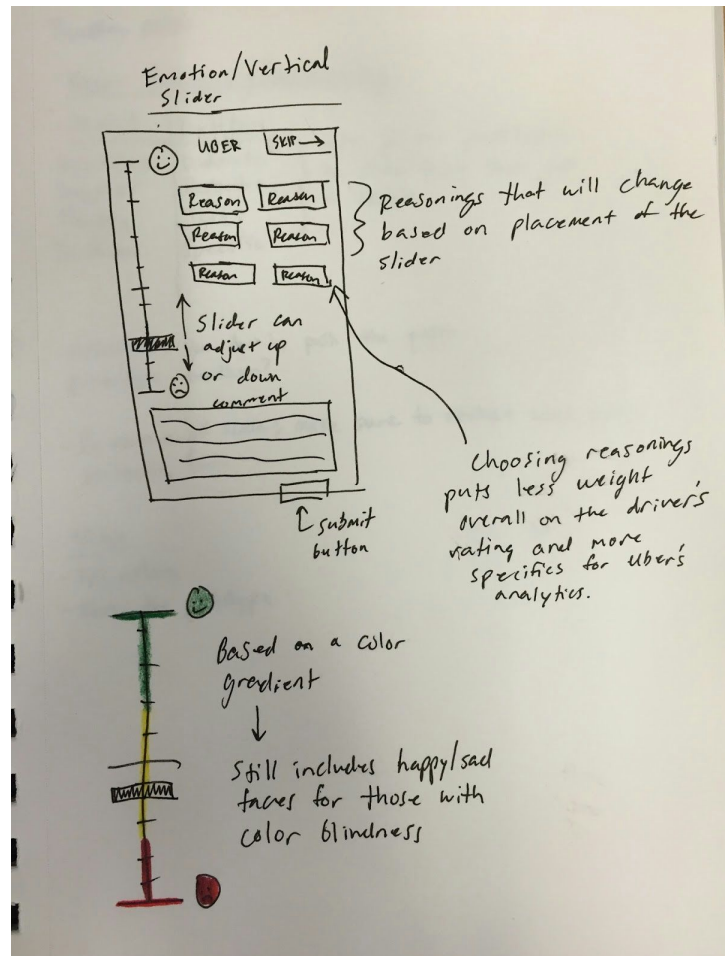 Emotion/Vertical
Slider
UBER
SKIP →
Reason Reason
Reason Reason
Reason Reason
Reasonings that will change
based on placement of the
slider
Slider can
adjust up
or down
comment
submit
button
Choosing reasonings
puts less weight
overall on the driver's
rating and more
specifics for Uber's
analytics.
Based on a color
gradient
Still includes happy/sad
faces for those with
color blindness